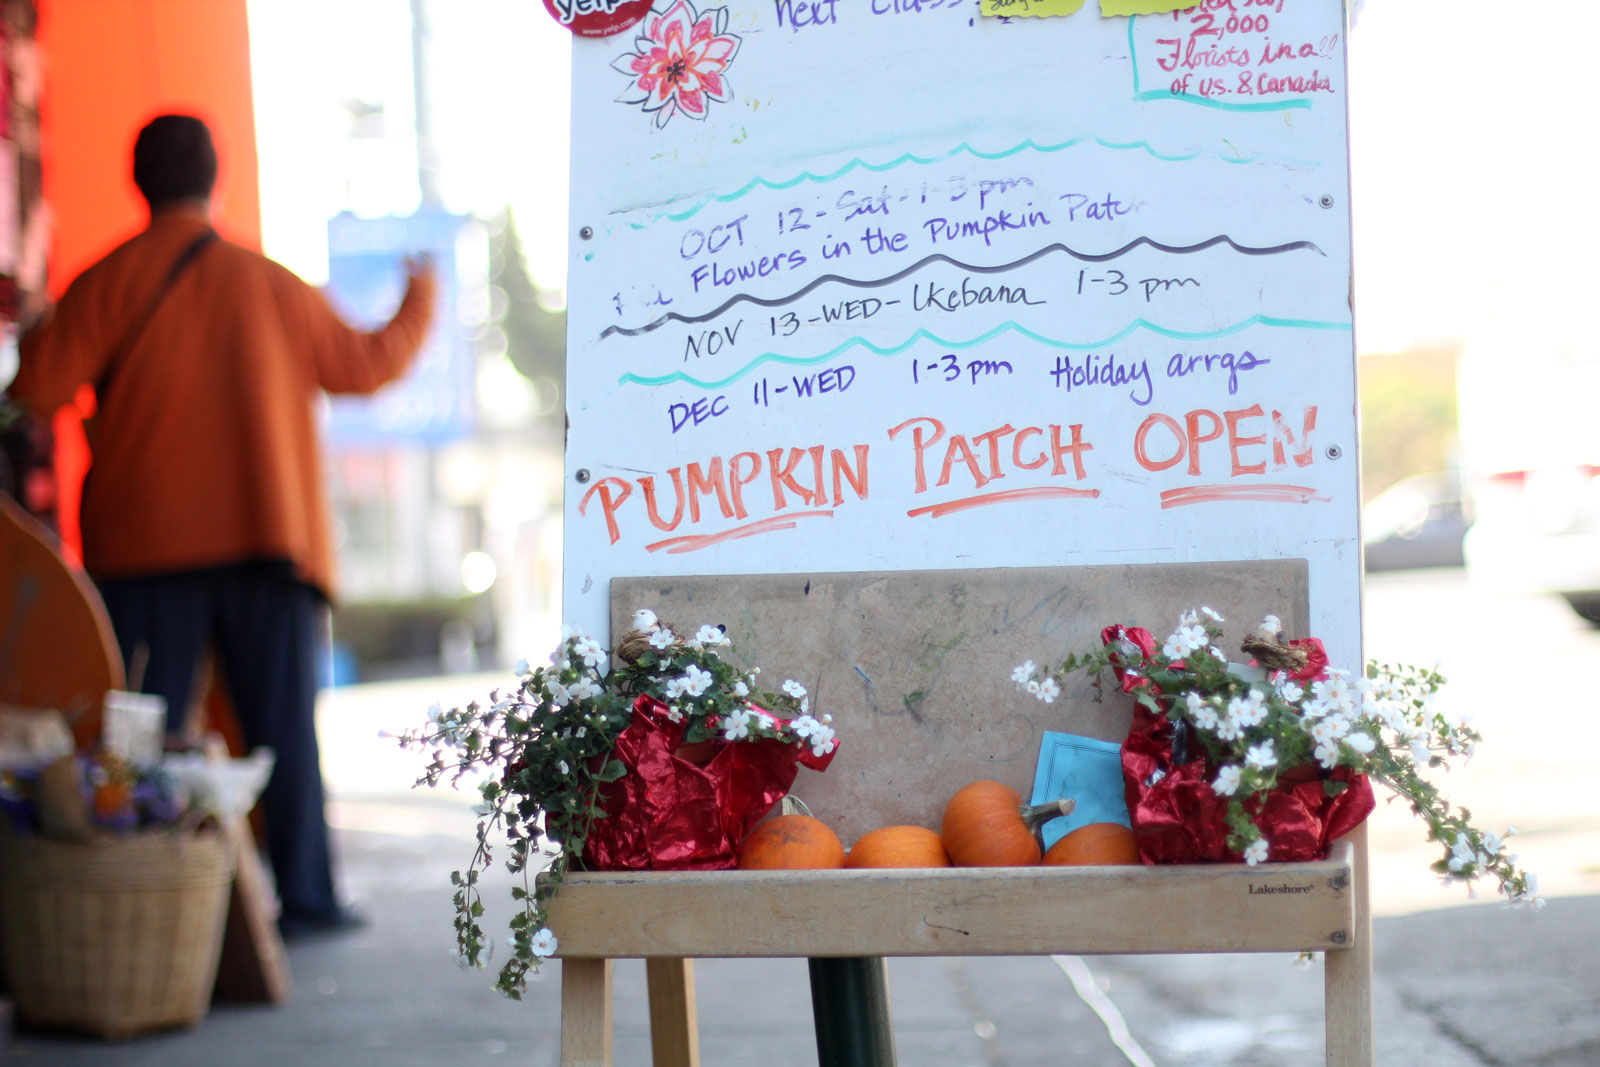 yelp
www.yelp.com
Next Class:
2,000
Florists in all
of U.S. & Canada
OCT 12 - Sat - 1-3pm
Flowers in the Pumpkin Patc
NOV 13-WED- Ikebana 1-3 pm
DEC 11-WED 1-3pm Holiday arrgs
PUMPKIN PATCH OPEN
Lakeshore®